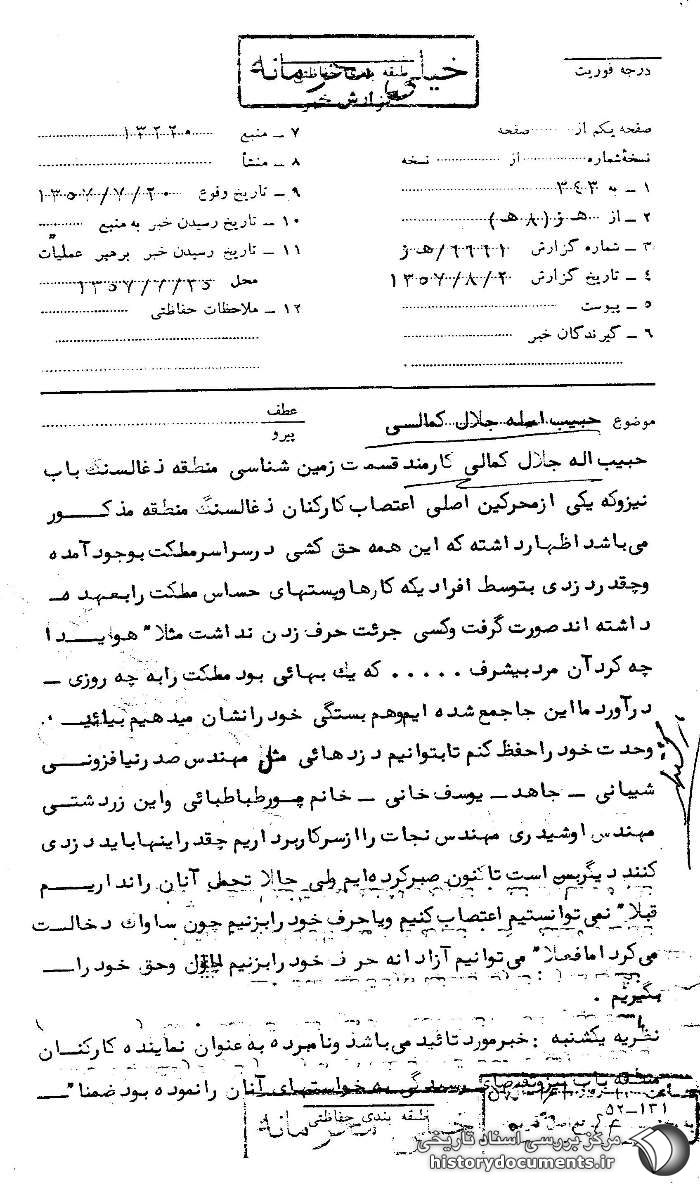 درجه فوریت
طبقه بندی حفاظتی
خیلی محرمانه
گزارش خبر
صفحه یکم از صفحه
نسخهٔ شماره از نسخه
۱ ـ به ۳۴۳
۲ ـ از هـ ز (۸ هـ)
۳ ـ شماره گزارش ۶۶۶۱ / هـ ز
۴ ـ تاریخ گزارش ۱۳۵۷/۸/۲
۵ ـ پیوست
۶ ـ گیرندگان خبر
۷ ـ منبع ۱۳۲۲۰
۸ ـ منشأ
۹ ـ تاریخ وقوع ۱۳۵۷/۷/۲۰
۱۰ ـ تاریخ رسیدن خبر به منبع
۱۱ ـ تاریخ رسیدن خبر برهبر عملیات
محل ۱۳۵۷/۷/۲۵
۱۲ ـ ملاحظات حفاظتی
موضوع حبیب اله جلال کمالی
عطف
پیرو
حبیب اله جلال کمالی کارمند قسمت زمین شناسی منطقه ذغالسنگ باب
نیزوکه یکی ازمحرکین اصلی اعتصاب کارکنان ذغالسنگ منطقه مذکور
می باشد اظهارداشته که این همه حق کشی درسراسرمملکت بوجود آمده
وچقدر دزدی بتوسط افرادیکه کارها وپستهای حساس مملکت رابعهده
داشته اند صورت گرفت وکسی جرئت حرف زدن نداشت مثلا" هویدا
چه کرد آن مرد بیشرف ..... که یك بهائی بود مملکت رابه چه روزی ـ
درآورد مااین جا جمع شده ایم وهم بستگی خود رانشان میدهیم بیائید
وحدت خود راحفظ کنم تابتوانیم دزدهائی مثل مهندس صدرنیا فزونی
شیبانی ـ جاهد ـ یوسف خانی ـ خانم پورطباطبائی واین زردشتی
مهندس اوشیدری مهندس نجات را ازسرکاربرداریم چقدر اینهاباید دزدی
کنند دیگربس است تاکنون صبرکرده ایم ولی حالا تحمل آنان رانداریم
قبلا" نمی توانستیم اعتصاب کنیم ویاحرف خود رابزنیم چون ساواك دخالت
می کرد امافعلا" می توانیم آزادانه حرف خود رابزنیم وحق خود را ـ
بگیریم .
نظریه یکشنبه : خبرمورد تائید می باشد ونامبرده به عنوان نماینده کارکنان
منطقه باب نیزو رسیدگی به خواستهای آنان رانموده بود ضمنا" ـ
۱۳۱ـ۵۲
طبقه بندی حفاظتی
خیلی محرمانه
مرکز بررسی اسناد تاریخی
historydocuments.ir